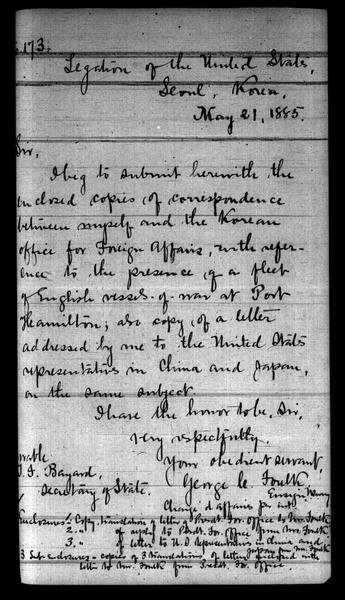 173.
Legation of the United States,
Seoul, Korea,
May 21, 1885.
Sir,
I beg to submit herewith the
enclosed copies of correspondence
between myself and the Korean
office for Foreign Affairs, with refer-
ence to the presence of a fleet
of English vessels-of-war at Port
Hamilton; also copy of a letter
addressed by me to the United States
representatives in China and Japan,
on the same subject.
I have the honor to be, Sir,
very respectfully,
Your obedient servant,
George C. Foulk
Ensign Navy
Chargé d'affaires ad int.
orable
T. F. Bayard,
Secretary of State.
Enclosures 1. Copy, translation of letter of Presdt. For. Office to Mr. Foulk
2. " of reply to Presdt. For. Office from Mr. Foulk
3. " of letter to U.S. Representatives in China and
Japan from Mr. Foulk
3 Sub-enclosures - copies of 3 translations of letters enclosed with
letter to Mr. Foulk from Presdt. For. Office.